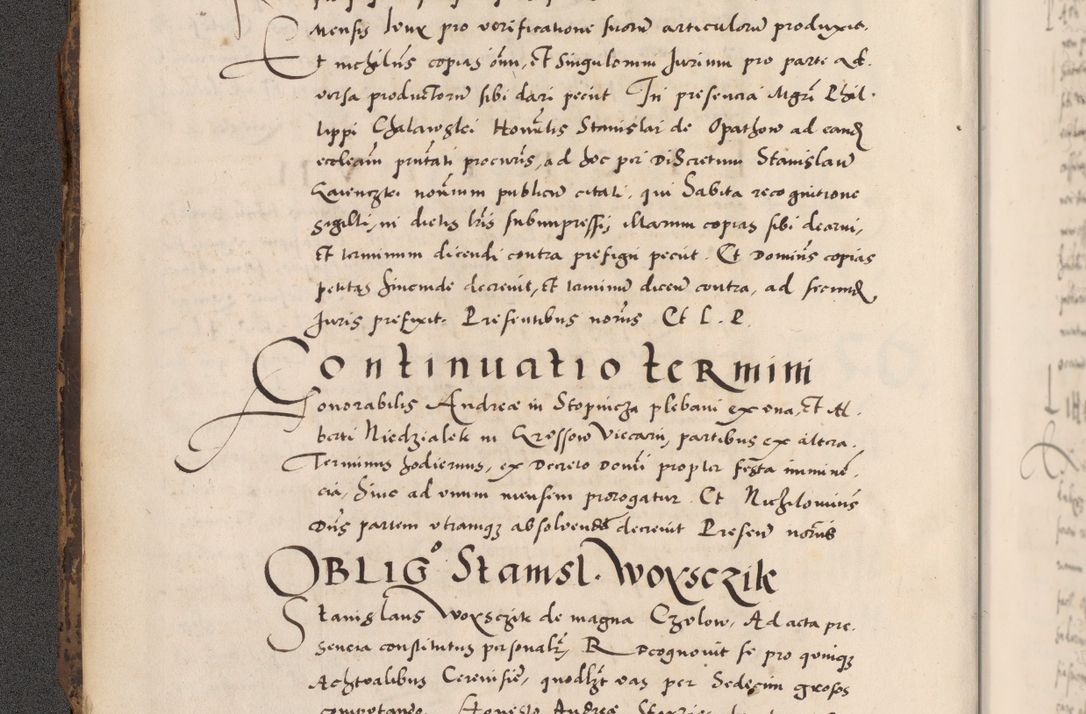 mensis seux pro verificatione suorū articulorū produxit.
Et nichilūs copias oīm, et singulorum Jurium pro parte ad.
versa productorū sibi dari peciit In presencia Mgrī Phil.
lippi Chalawskei Honīlis Stanislai de Opathow ad eand
eccleam prntati procuris, ad hoc per Discretum Stanislaū
notrium publicū citati, qui habita recognitione
sigilli, in dictis lris subimpressi, illarum copias sibi decerni,
et terminum dicendi contra prefigi peciit. Et Dominus copias
petitas hincinde decrevit, et terminū dicen contra, ad secund
Juris prefixit. Presentibus noris Et L. P.
Continuatio termini
Honorabilis Andree in Stopnicza plebani ex una, et Al.
berti Niedzialek in Kressow Vicarii, partibus ex altera.
Terminus hodiernus, ex Decreto Domī propter festa imminē.
cia, hinc ad unum mensem prorogatur. Et Nichilominus
Dns partem utramqʒ absolvend decrevit Presen noris
OBLIGo Stanisl. Woxsczik
Stanislaus Woxsczik de magna Czylow, Ad acta pre.
sencia constitutus personalr, Recognovit se pro quinqʒ
Achtvalibus Cerevisie, quodlzt vas per Sedecim grosos
computando, Honesto Andree